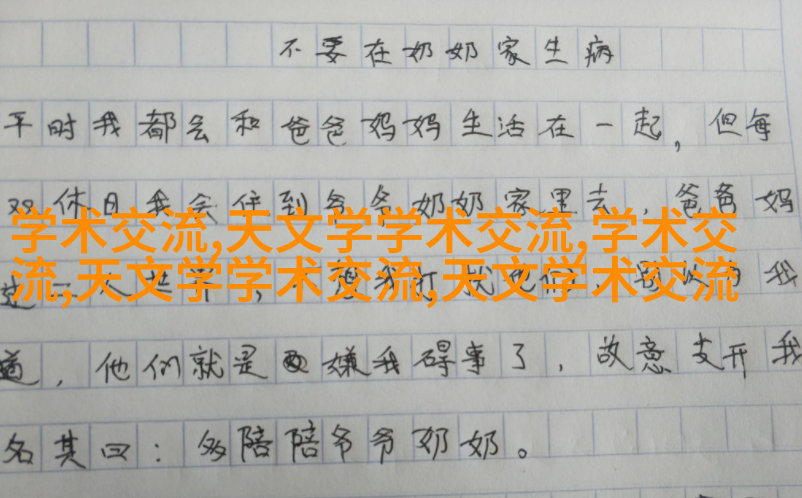 不要在奶奶家生病
平时我都会和爸爸妈妈生活在一起,但每
双休日我会住到爷爷奶奶家里去,爸爸妈
学术交流,天文学学术交流,学术交
流,天文学学术交流,天文学术交流
道,他们就是嫌我碍事了,故意支开我
名其曰:多陪陪爷爷奶奶。